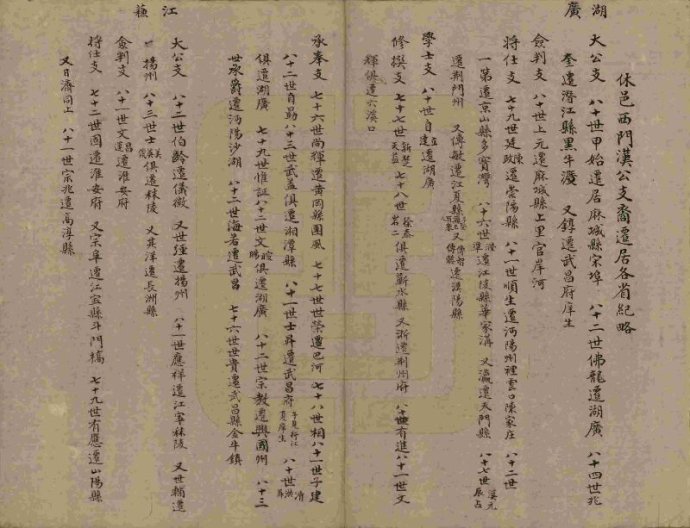 湖廣
休邑西門漢公支裔遷居各省紀略
大公支 八十世甲始遷居麻城縣宋埠 八十二世佛龍遷湖廣 八十四世兆
奎遷潛江縣黑牛瀆 又鎮遷武昌府岸生
僉判支 八十世上元遷麻城縣上里官岸河
將仕支 七十九世廷政遷崇陽縣 八十一世順生遷沔陽州裡雲口陳家庄 八十二世
一第遷京山縣多寶灣 八十六世遷江陵縣華家溝 又瀛遷天門縣 八十七世
遷荆門州 又傳敏遷江夏縣 又遷漢陽縣
學士支 八十世自遷湖廣
修撰支 七十七世 七十八世 俱遷蘄水縣 又浙遷荆州府 八十世有進八十一世文
輝俱遷六溪口
江蘇
承奉支 七十六世尚輝遷黃岡縣團風 七十七世世榮遷巴河 七十八世相八十一世子建
八十二世自勛八十三世武益俱遷湘潭縣 八十一世士昇遷武昌府 八十世
俱遷湖廣 七十九世惟証八十二世文俱遷湖廣 八十二世宗教遷興國州 八十三
世承爵遷沔陽沙湖 八十三世海若遷武昌 七十六世世貴遷武昌縣金牛鎮
大公支 八十二世伯齡遷儀徵 又世經遷揚州 八十一世應祥遷江寧秣陵 又世輔遷
揚州 八十三世士俱遷秣陵 又其洋遷長洲縣
僉判支 八十一世文遷淮安府
將仕支 七十二世圓遷淮安府 又宗阜遷江宜縣斗門橋 七十九世有應遷山陽縣
又日濟同上 八十一世宗兆遷高淳縣